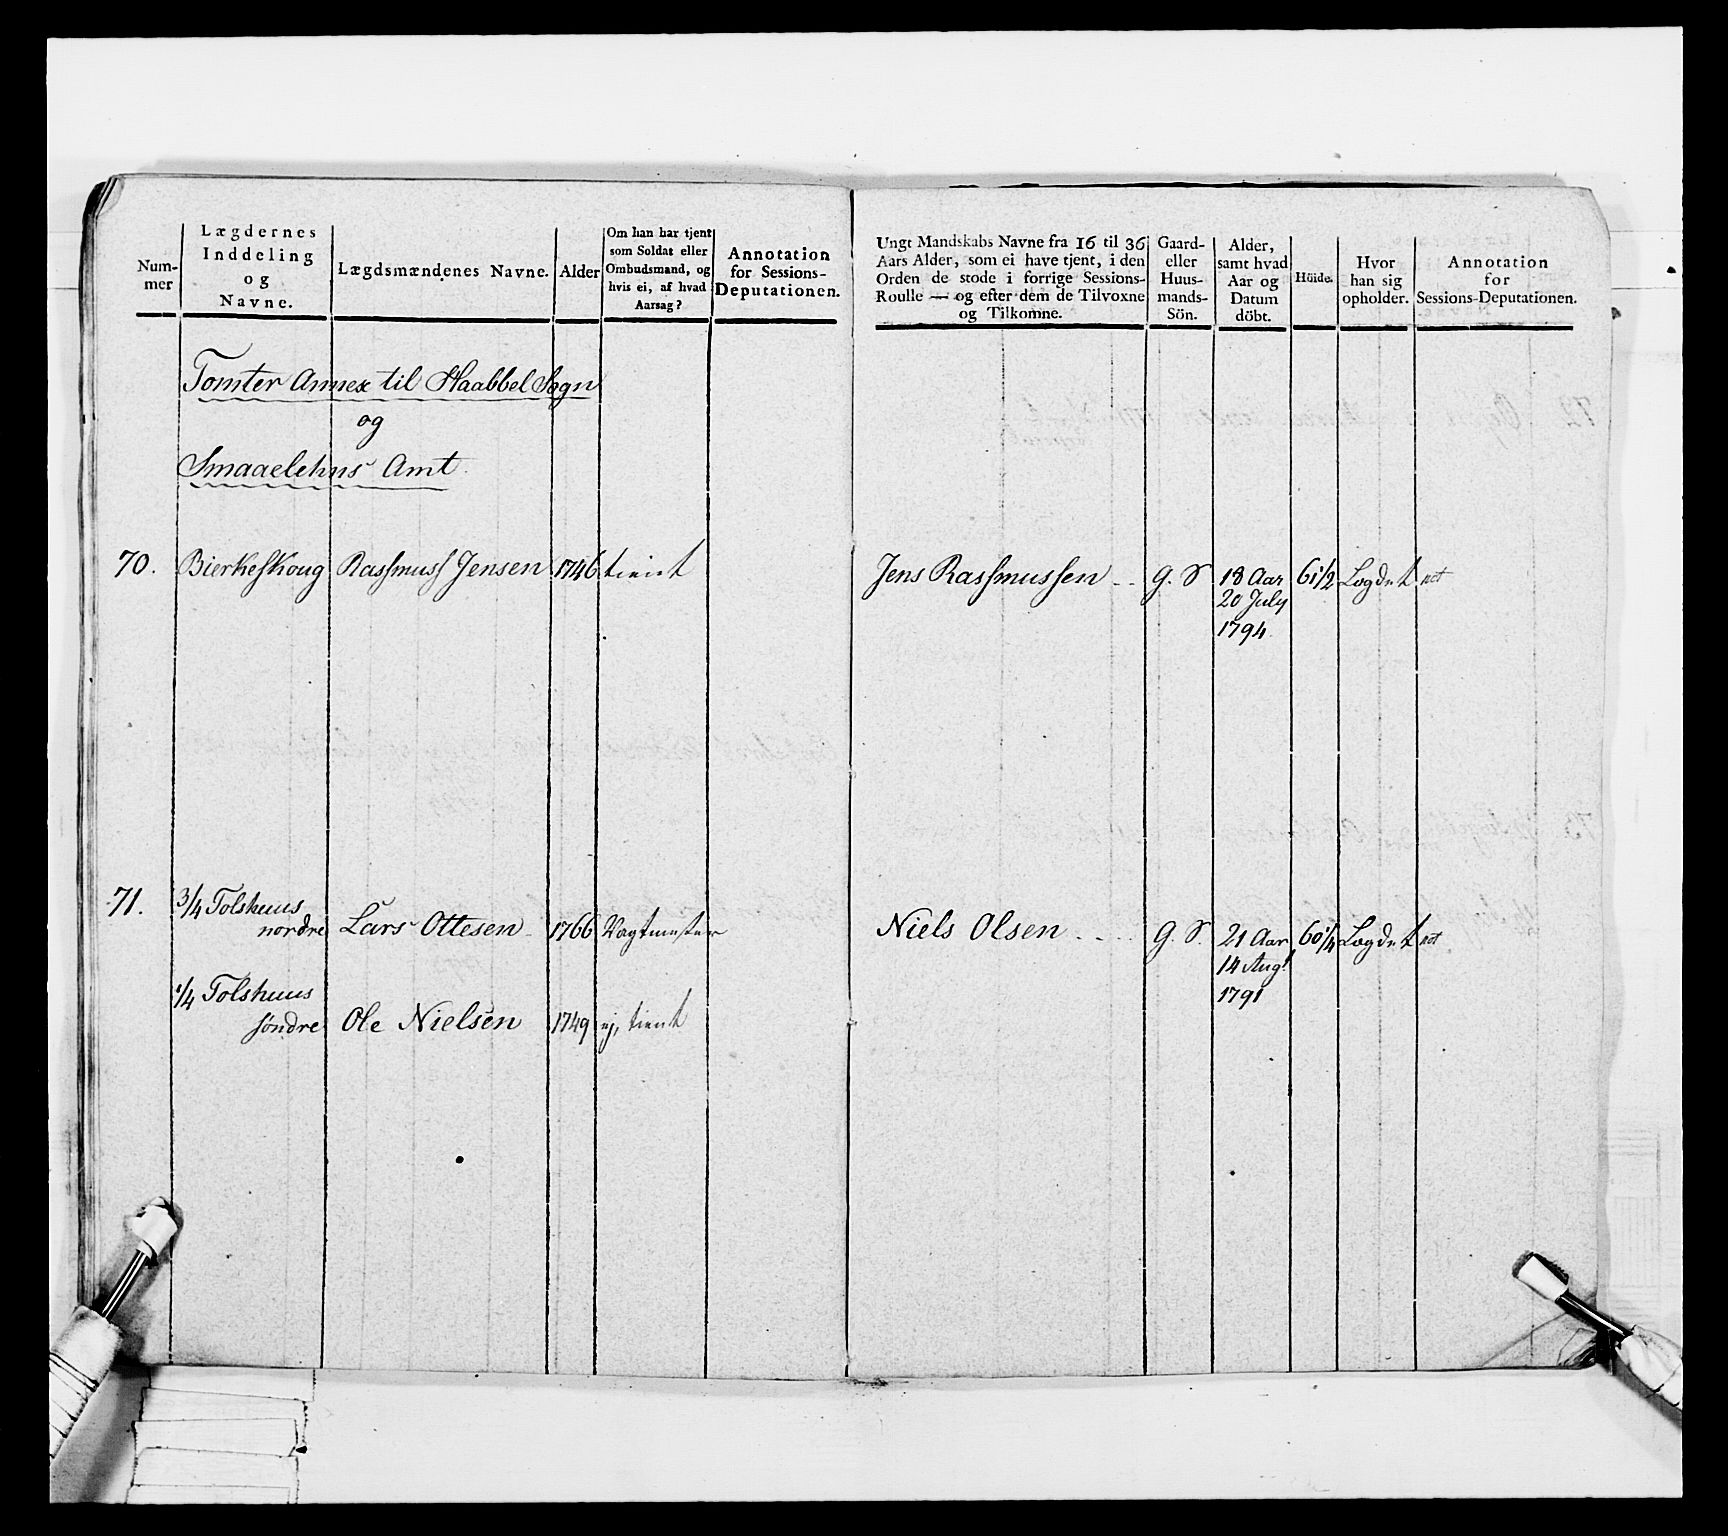 Num-
mer
Lægdernes
Inddeling
og
Navne.
Lægdsmændenes Navne.
Alder
Om han har tjent
som Soldat eller
Ombudsmand, og
hvis ei, af hvad
Aarsag?
Annotation
for Sessions-
Deputationen.
Ungt Mandskabs Navne fra 16 til 36
Aars Alder, som ei have tjent, i den
Orden de stode i forrige Sessions-
Roulle — og efter dem de Tilvoxne
og Tilkomne.
Gaard-
eller
Huus-
mands-
Sön.
Alder,
samt hvad
Aar og
Datum
döbt.
Höide.
Hvor
han sig
opholder.
Annotation
for
Sessions-Deputationen.
Tomter Annex til Haabbel Sogn
og
Smaaelehns Amt.
70. Bierkeskoug Rassmuss Jensen 1746 tient Jens Rassmussen G. S 18 Aar 61 1/2 Lægdet
20 July
1794
71. 3/4 Tolshuus
nordre Lars Ottesen 1766 Vagtmester Niels Olsen G. S. 21 Aar 60 1/4 Lægdet
14 Augt
1791
1/4 Tolshuus
søndre Ole Nielsen 1749 ej, tient